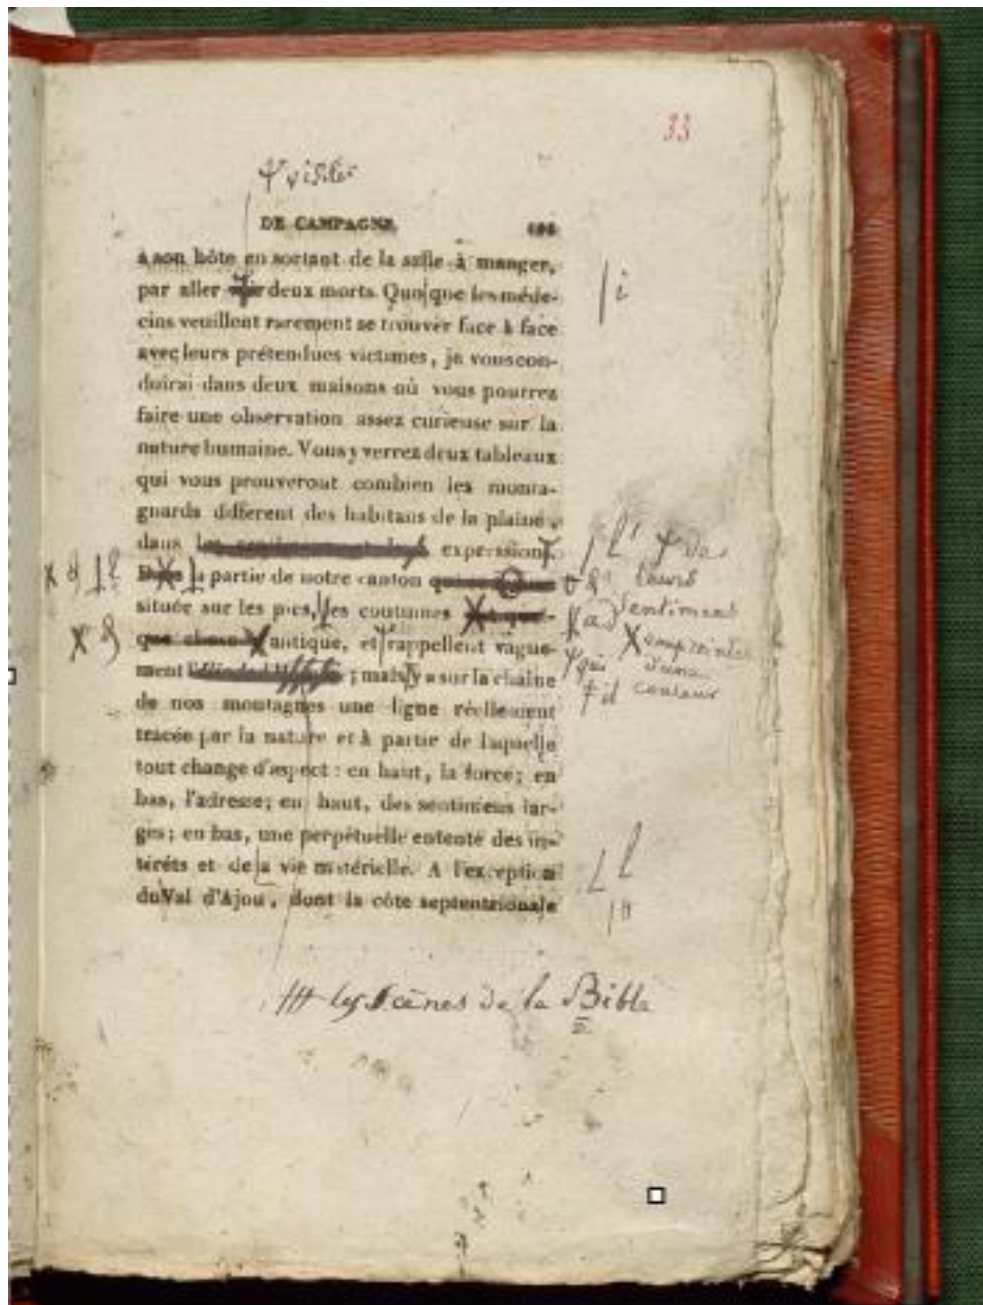 33
visiter
DE CAMPAGNE.
à son hôte en sortant de la salle à manger,
par aller voir deux morts. Quoique les méde-
cins veuillent rarement se trouver face à face
avec leurs prétendues victimes, je vous con-
duirai dans deux maisons où vous pourrez
faire une observation assez curieuse sur la
nature humaine. Vous y verrez deux tableaux
qui vous prouveront combien les monta-
gnards diffèrent des habitans de la plaine,
dans expression
l' de
la partie de notre canton
leurs
sentimens
située sur les pics, les coutumes
ad
que antique, et rappellent vague-
empreintes
qui
d'une
ment ; mais y a sur la chaîne
il couleur
de nos montagnes une ligne réellement
tracée par la nature et à partir de laquelle
tout change d'aspect : en haut, la force; en
bas, l'adresse; en haut, des sentimens lar-
ges; en bas, une perpétuelle entente des in-
térêts et de la vie matérielle. A l'exception
l
du Val d'Ajou, dont la côte septentrionale
les Scènes de la Bible